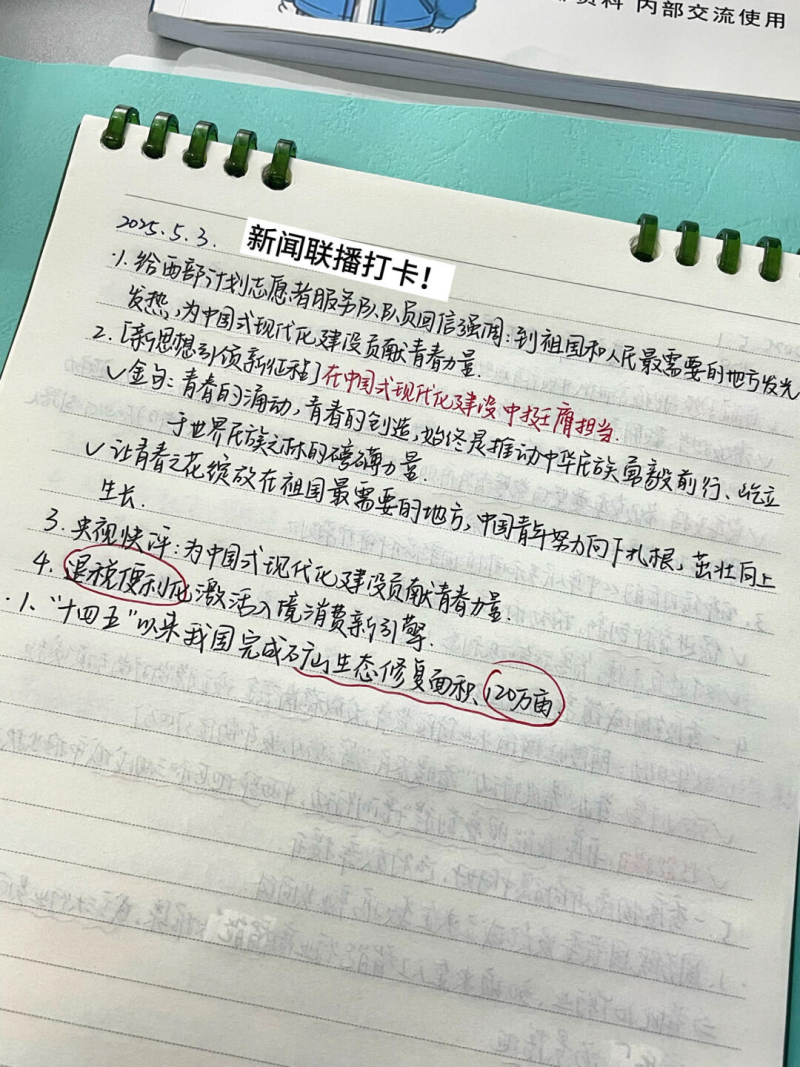 资料 内部交流使用
2025.5.3.
新闻联播打卡！
·1.给西部计划志愿者服务队队员回信强调：到祖国和人民最需要的地方发光
发热，为中国式现代化建设贡献青春力量.
2.[新思想引领新征程]在中国式现代化建设中挺膺担当.
✓金句：青春的涌动，青春的创造，始终是推动中华民族勇毅前行、屹立
于世界民族之林的磅礴力量.
✓让青春之花绽放在祖国最需要的地方，中国青年努力向下扎根，茁壮向上
生长.
3.央视快评：为中国式现代化建设贡献青春力量.
4.退税便利化激活入境消费新引擎.
·1.“十四五”以来我国完成矿山生态修复面积120万亩.